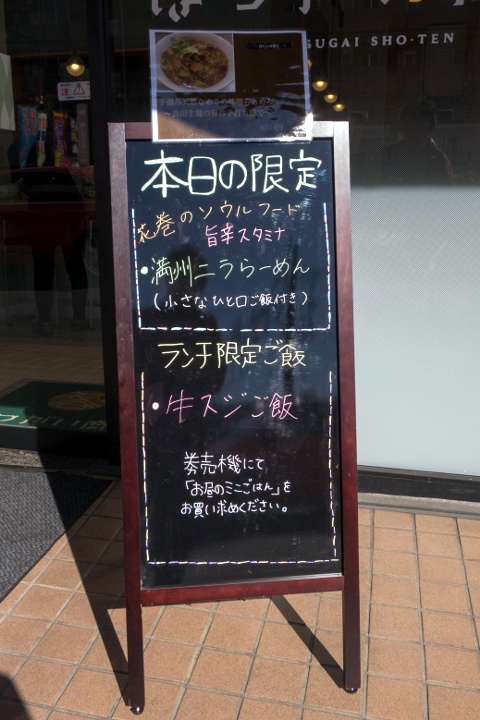 SUGAI SHO-TEN
注意
本日の限定
花巻のソウルフード
旨辛スタミナ
・満州ニラらーめん
(小さなひと口ご飯付き)
ランチ限定ご飯
・牛スジご飯
券売機にて
「お昼のミニごはん」を
お買い求めください。